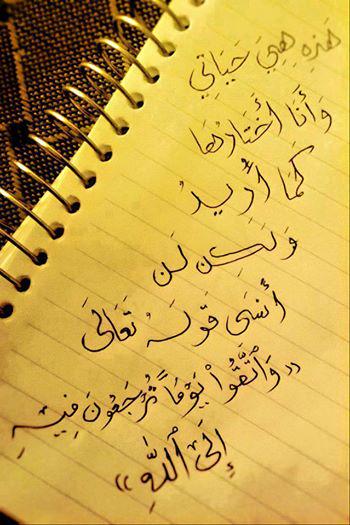 هَذِهِ هِيَ حَيَاتِي
وَأَنَا أَخْتَارُهَا
كَمَا أُرِيدُ
وَلَكِن لَن
أَنسَى قَولَهُ تَعَالَى
«وَٱتَّقُواْ يَوْمًا تُرْجَعُونَ فِيهِ
إِلَى ٱللَّهِ»